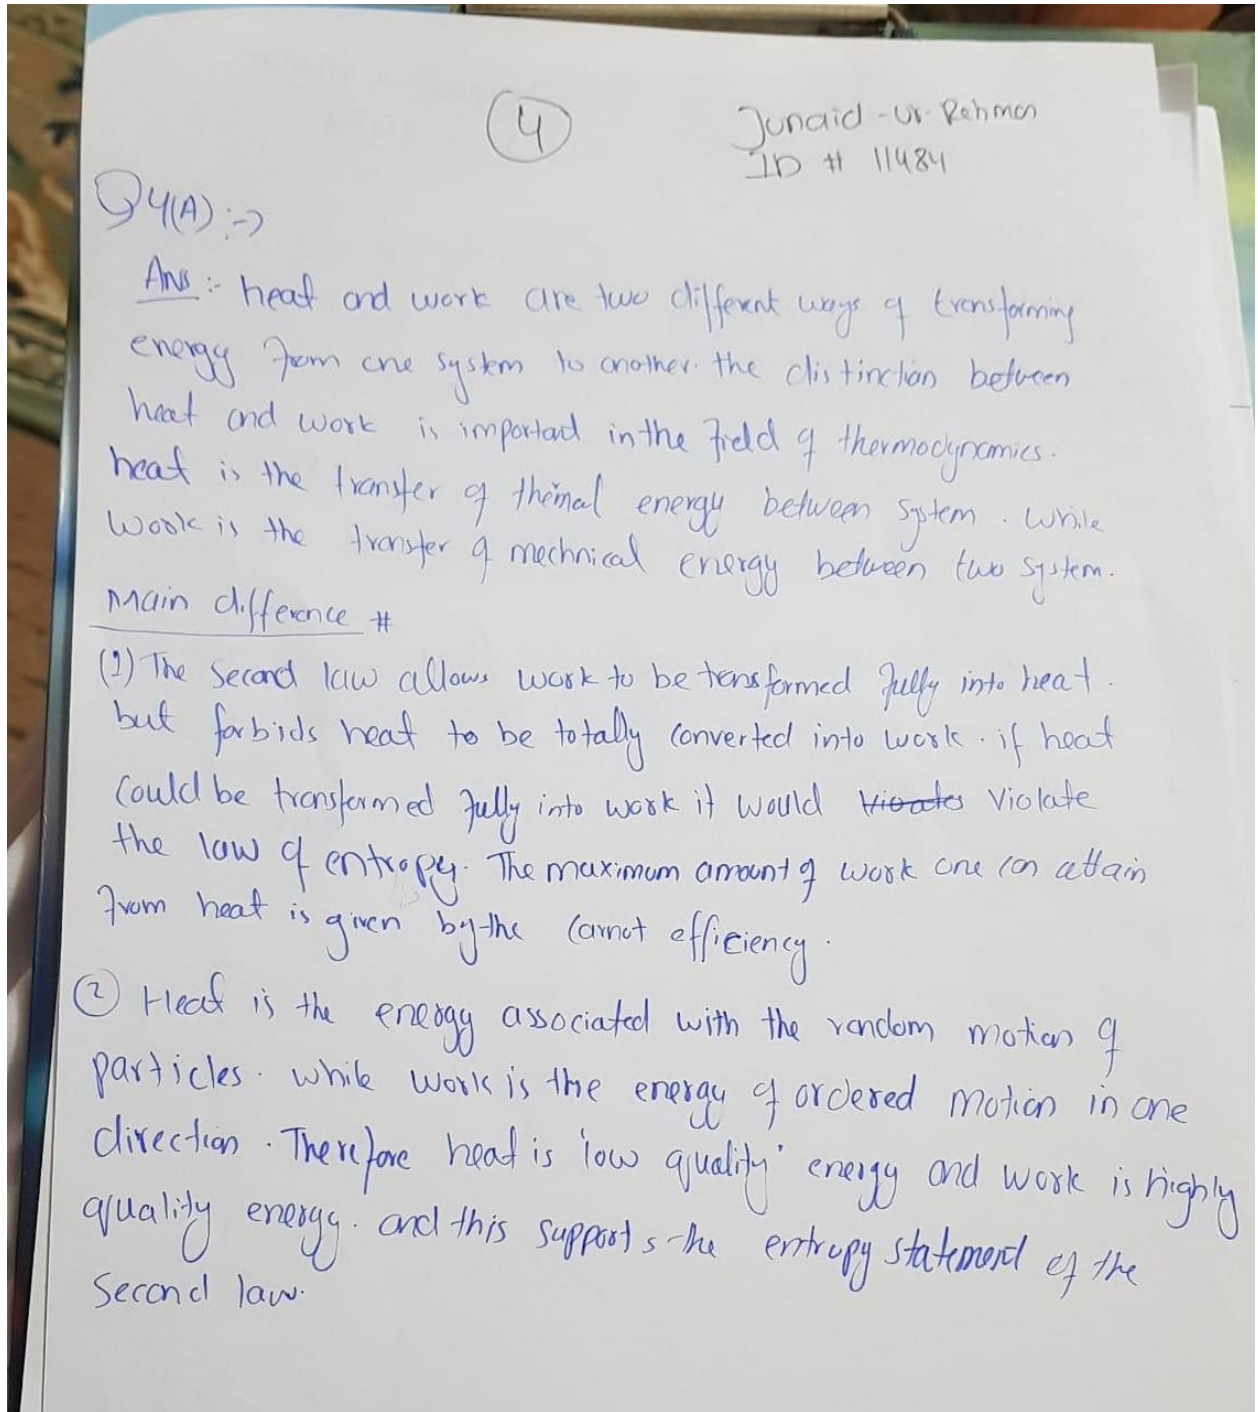 4
Junaid-ur-Rehman
ID # 11484
Q4(A) :->
Ans :- heat and work are two different ways of transforming
energy from one system to another. the distinction between
heat and work is importad in the field of thermodynamics.
heat is the transfer of themal energy between system. While
Work is the transfer of mechnical energy between two system.
Main difference #
(1) The second law allows work to be transformed fully into heat.
but forbids heat to be totally converted into work. if heat
could be transformed fully into work it would Vioates Violate
the law of entropy. The maximum amount of work one can attain
from heat is given by the Carnot efficiency.
(2) Heat is the energy associated with the random motion of
particles. while work is the energy of ordered motion in one
direction. Therefore heat is 'low quality' energy and work is highly
quality energy. and this supports the entropy statement of the
Second law.